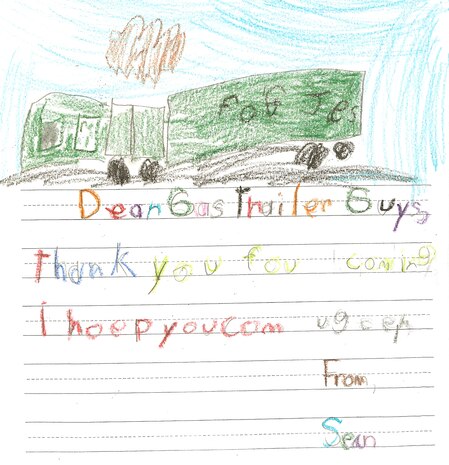 FOG Jes
Dear Gas Trailer Guys,
Thank you fou coming
I hoep you com ugeen
From,
Sean